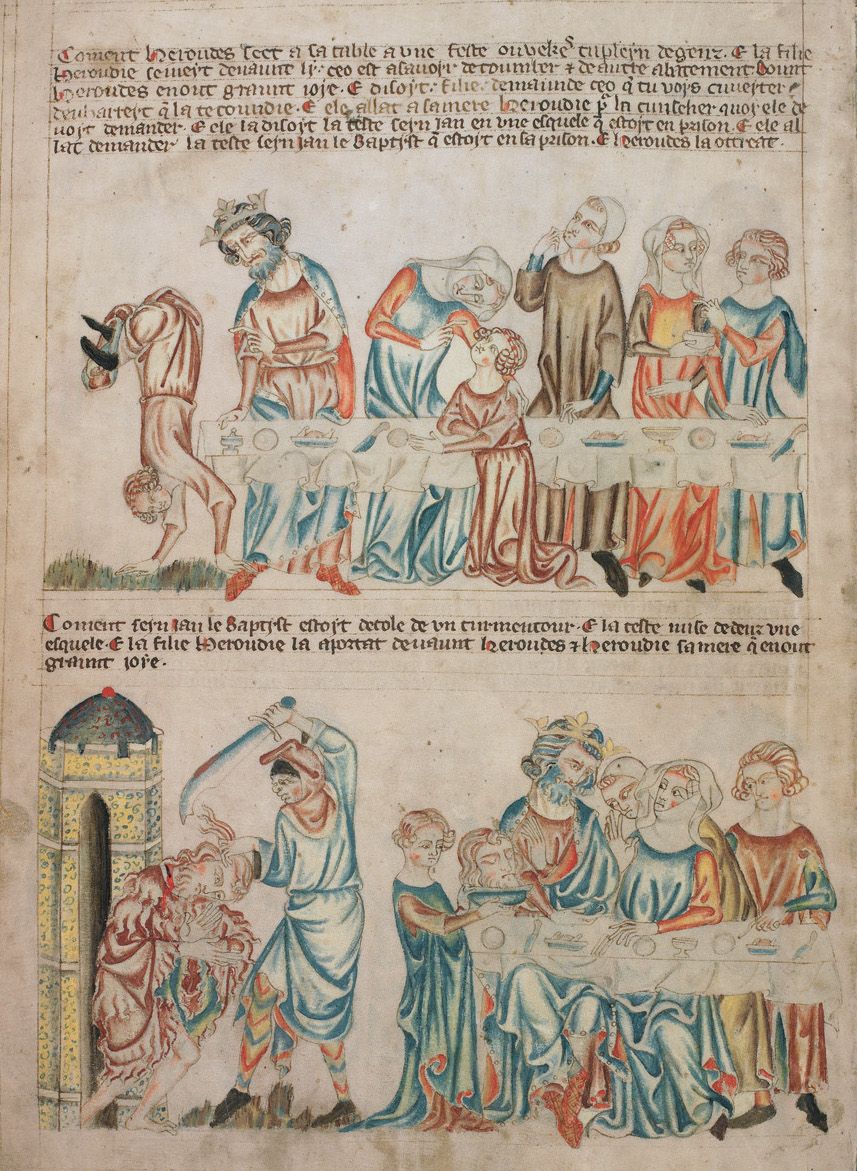 Coment Heroudes seet a sa table a vne feste ou veke͛s tuplein de genz. E la fille
Heroudie seniert deuaunt ly. ceo est a sauoir de toumbler ⁊ de autre abitement. Dount
Heroudes en out graunt ioye. E disoyt. fille demaunde ceo q̄ tu voys
q̄ la te E ele allat a sa mere Heroudie quoy ele de
uoyt demander. E ele la disoyt la teste seyn Jan en vne esquele q̄ estoyt en prison. E ele al
lat demander la teste seyn Jan le Baptist q̄ estoyt en sa prison. E Heroudes la ottreat.
Coment seyn Jan le Baptist estoyt decole de vn turmentour. E la teste mise dedenz vne
esquele. E la fille Heroudie la aportat deuaunt Heroudes ⁊ Heroudie sa mere q̄ en out
graunt ioye.